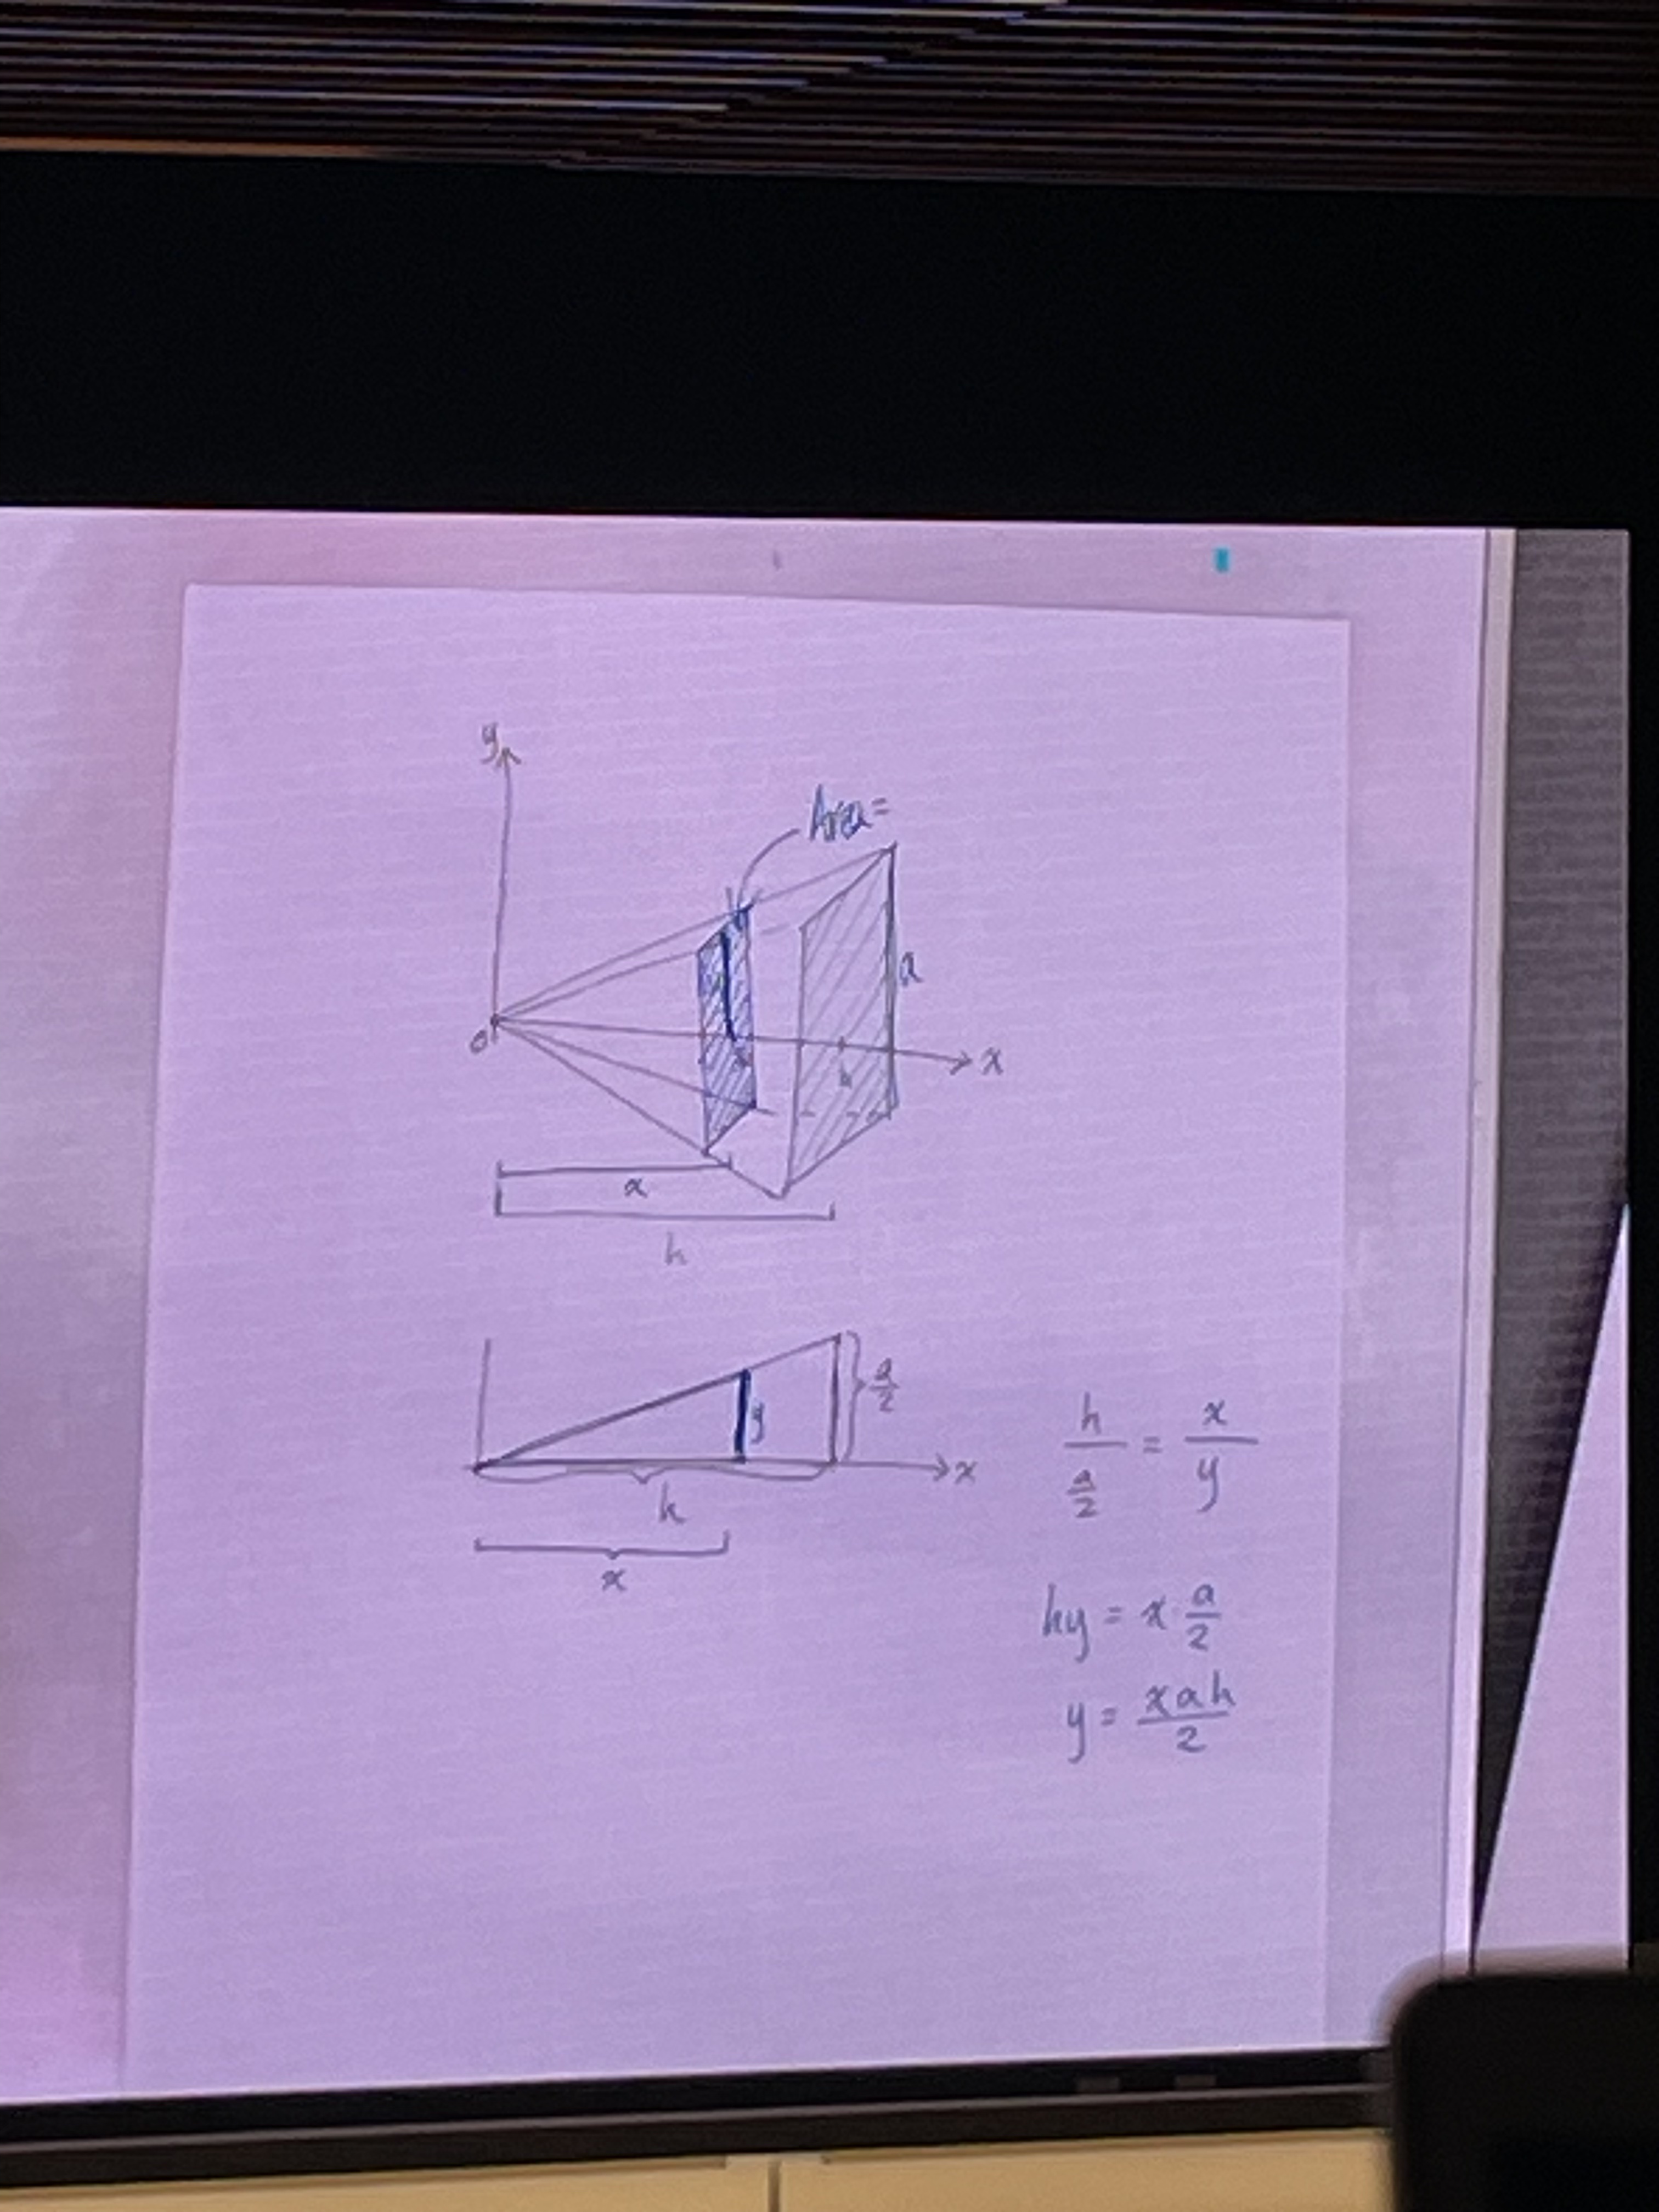 y
Area =
a
o
x
h
x
h
a/2
y
x
h
x
h/(a/2) = x/y
hy = x · a/2
y = xah/2